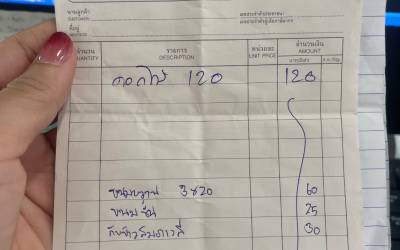 นามลูกค้า
CUSTOMER
ที่อยู่
ADDRESS
เลขประจำตัวประชาชน
จำนวน รายการ หน่วยละ จำนวนเงิน
QUANTITY DESCRIPTION UNIT PRICE AMOUNT
ดอกไม้ 120 120
ขนมหวาน 3x20 60
ขนมชั้น 25
30